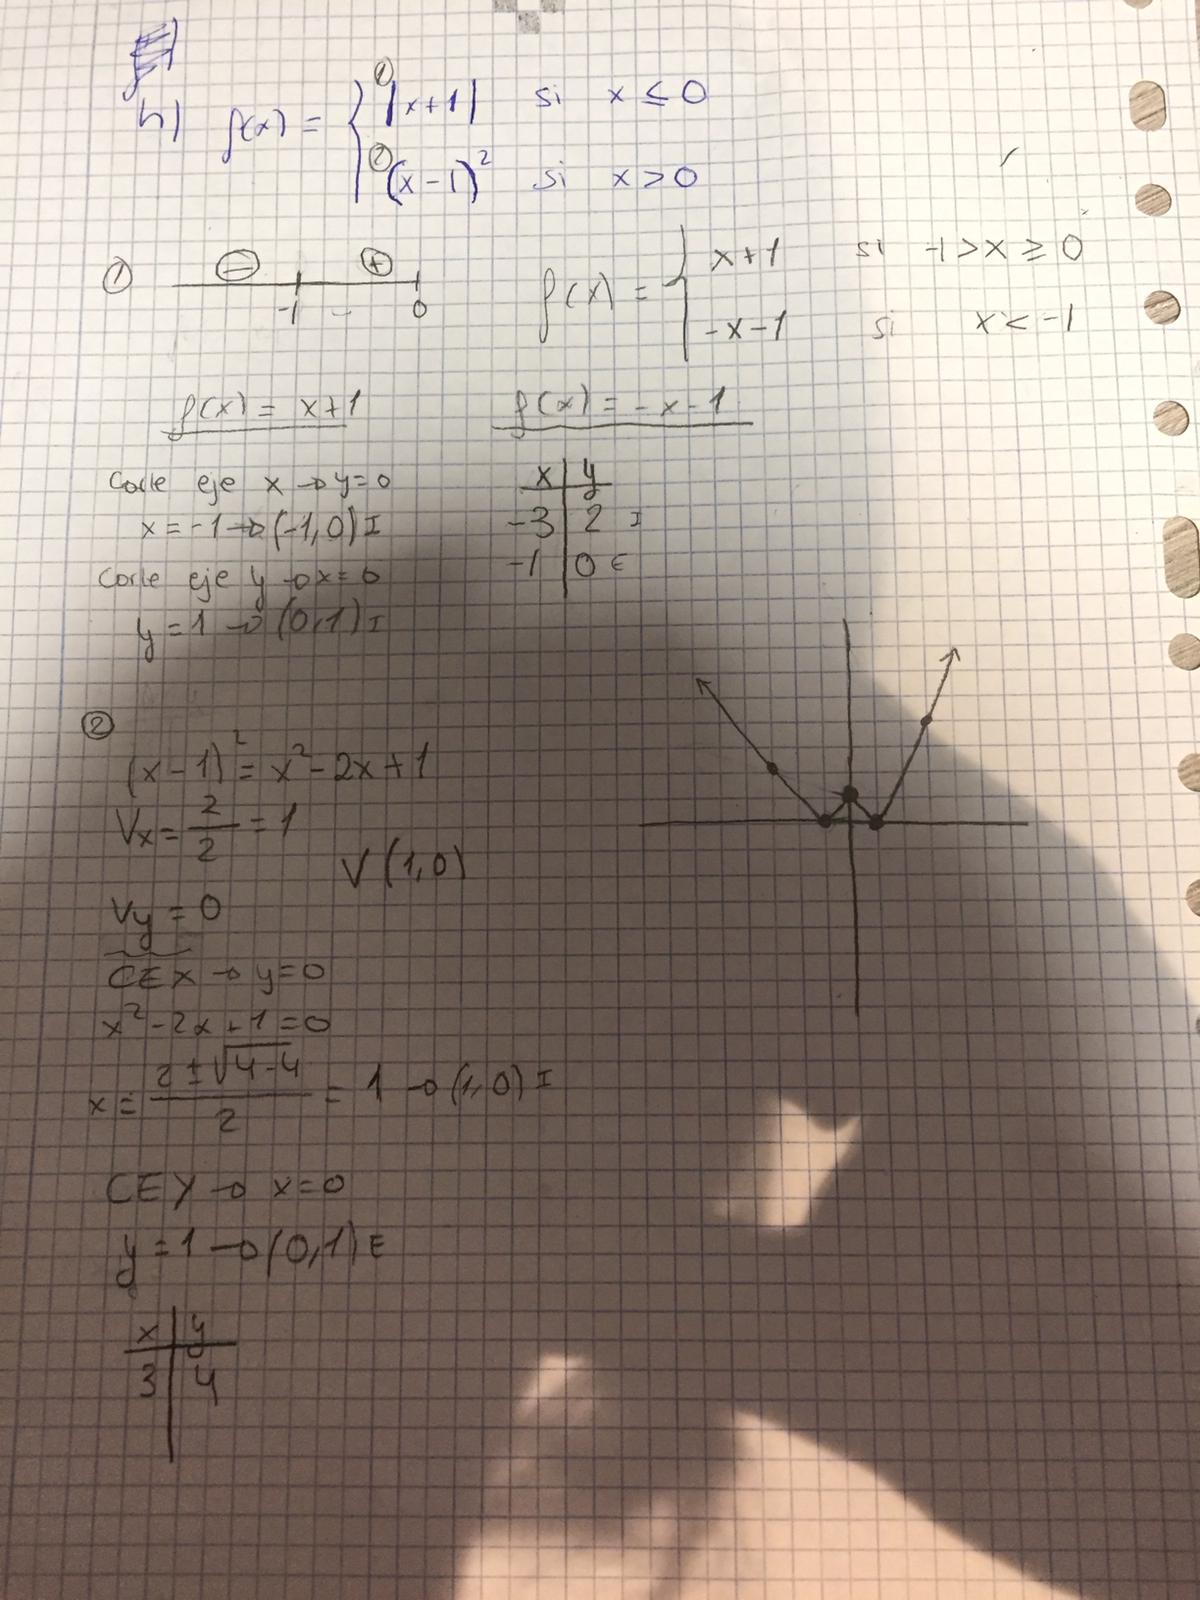 h) f(x) = { ① |x+1| si x ≤ 0
② (x-1)² si x > 0
① ⊖ ⊕
-1 - 0
f(x) = { x+1 si -1 > x ≥ 0
-x-1 si x < -1
f(x) = x+1
Corte eje x → y=0
x = -1 → (-1,0) I
Corte eje y → x=0
y = 1 → (0,1) I
f(x) = -x-1
x | y
-3 | 2 I
-1 | 0 E
②
(x-1)² = x² - 2x + 1
Vx = 2/2 = 1
V (1,0)
Vy = 0
CEX → y=0
x² - 2x + 1 = 0
x = (2 ± √4-4)/2 = 1 → (1,0) I
CEY → x=0
y = 1 → (0,1) E
x | y
3 | 4